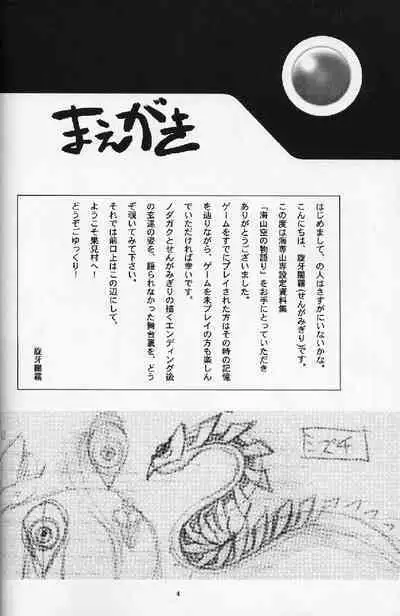 まえがき
はじめまして、の人はさすがにいないかな。
こんにちは、旋牙闇霧(せんがみぎり)です。
この度は海専山専設定資料集
「海山空の物語り」をお手にとっていただき
ありがとうございました。
ゲームをすでにプレイされた方はその時の記憶
を辿りながら、ゲームを未プレイの方も楽しん
でいただければ幸いです。
ノダガクとせんがみぎりの描くエンディング後
の玄達の姿を、語られなかった舞台裏を、どう
ぞ覗いてみて下さい。
それでは前口上はこの辺にして、
ようこそ巣見村へ！
どうぞごゆっくり！
旋牙闇霧
ミズチ
4